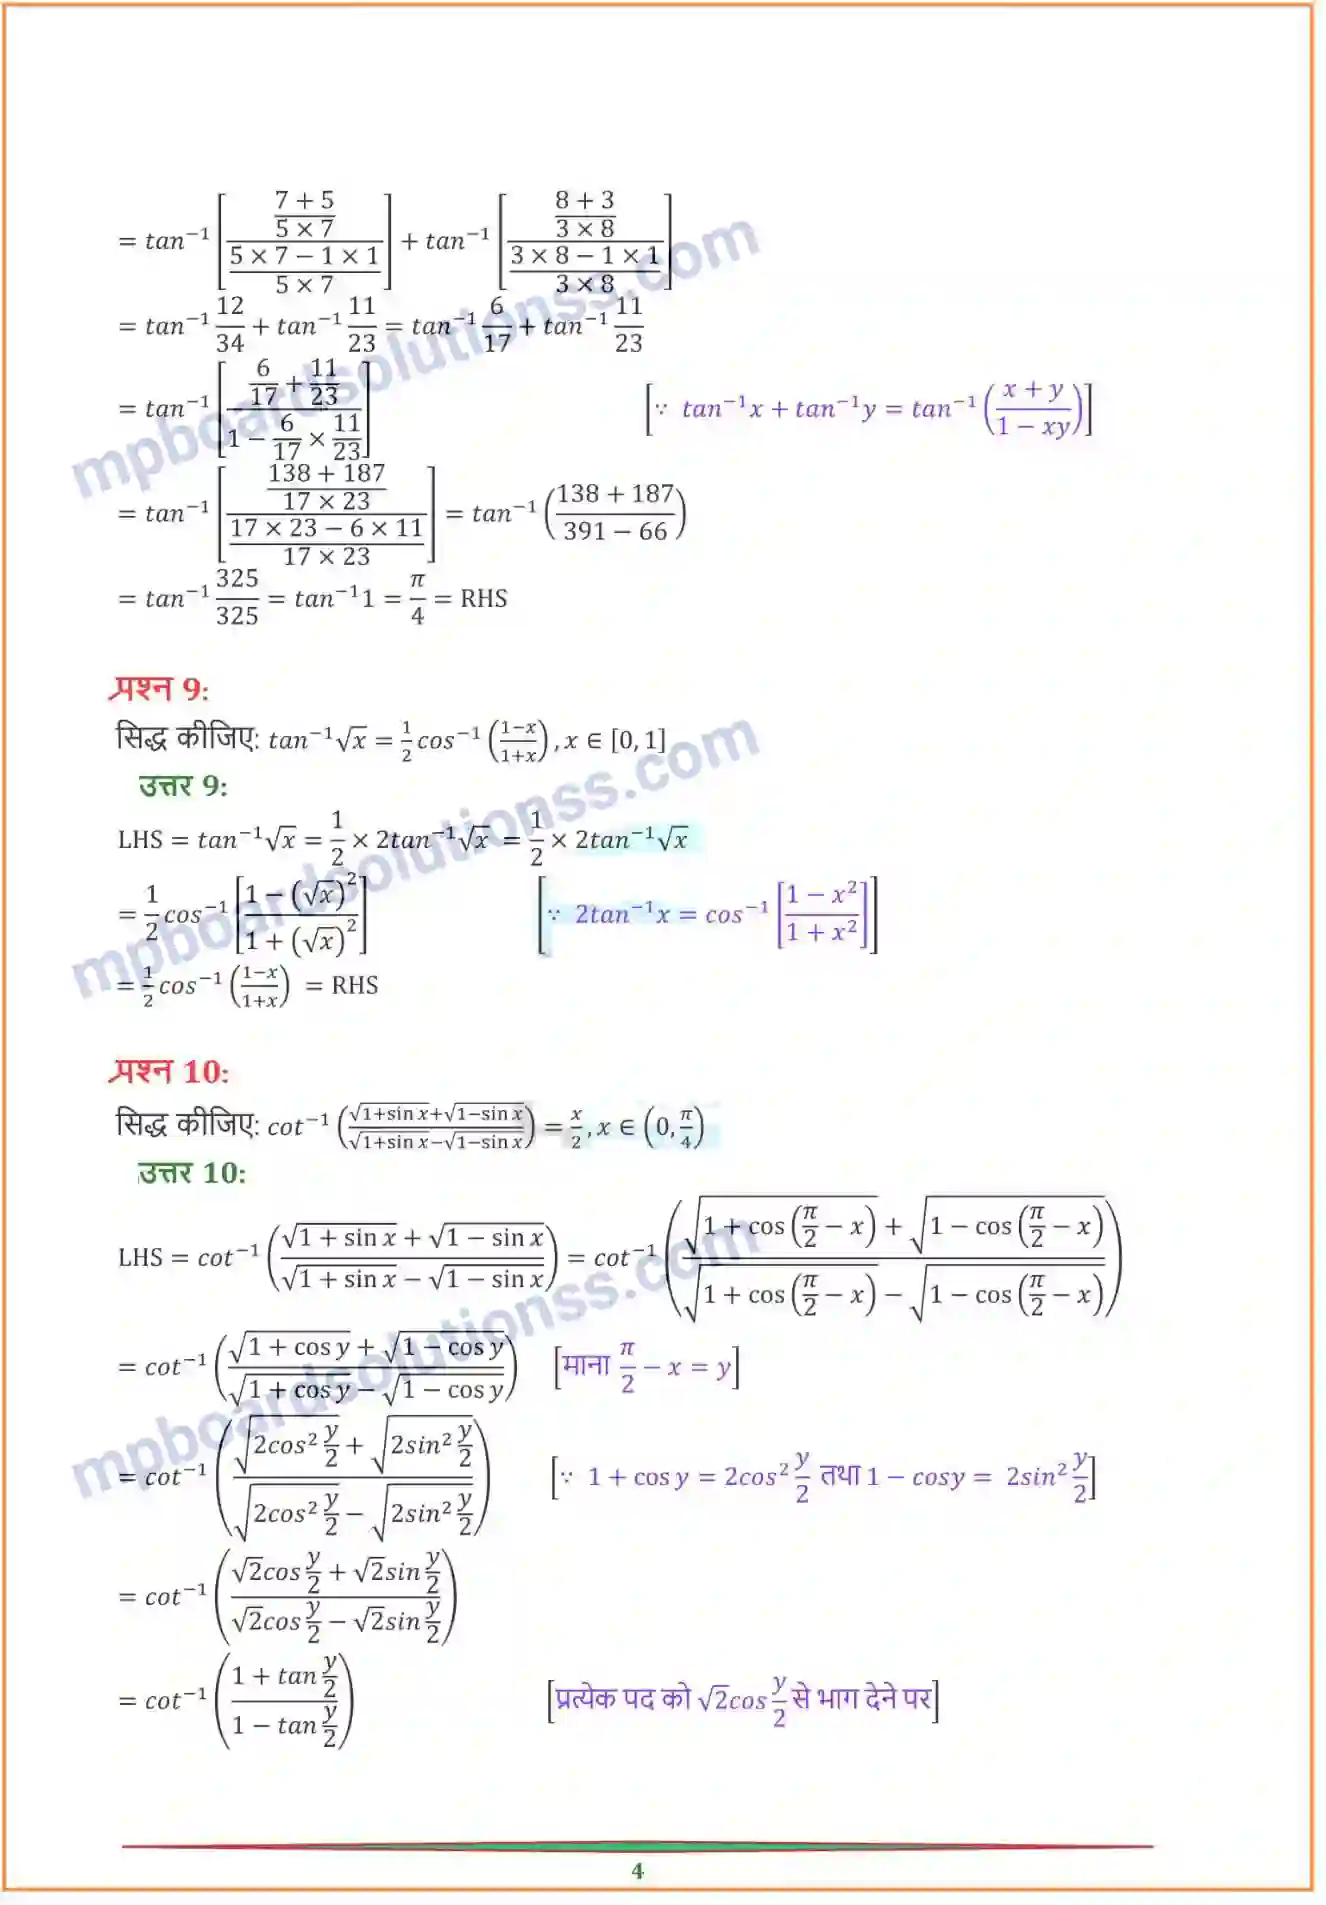 = tan⁻¹ [((7 + 5)/(5 × 7))/((5 × 7 − 1 × 1)/(5 × 7))] + tan⁻¹ [((8 + 3)/(3 × 8))/((3 × 8 − 1 × 1)/(3 × 8))]
= tan⁻¹ 12/34 + tan⁻¹ 11/23 = tan⁻¹ 6/17 + tan⁻¹ 11/23
= tan⁻¹ [(6/17 + 11/23)/(1 − 6/17 × 11/23)] [∵ tan⁻¹x + tan⁻¹y = tan⁻¹ ((x + y)/(1 − xy))]
= tan⁻¹ [((138 + 187)/(17 × 23))/((17 × 23 − 6 × 11)/(17 × 23))] = tan⁻¹ ((138 + 187)/(391 − 66))
= tan⁻¹ 325/325 = tan⁻¹1 = π/4 = RHS
प्रश्न 9:
सिद्ध कीजिए: tan⁻¹√x = 1/2 cos⁻¹ ((1−x)/(1+x)), x ∈ [0, 1]
उत्तर 9:
LHS = tan⁻¹√x = 1/2 × 2tan⁻¹√x = 1/2 × 2tan⁻¹√x
= 1/2 cos⁻¹ [(1 − (√x)²)/(1 + (√x)²)] [∵ 2tan⁻¹x = cos⁻¹ [(1 − x²)/(1 + x²)]]
= 1/2 cos⁻¹ ((1−x)/(1+x)) = RHS
प्रश्न 10:
सिद्ध कीजिए: cot⁻¹ ((√(1+sin x)+√(1−sin x))/(√(1+sin x)−√(1−sin x))) = x/2, x ∈ (0, π/4)
उत्तर 10:
LHS = cot⁻¹ ((√(1 + sin x) + √(1 − sin x))/(√(1 + sin x) − √(1 − sin x))) = cot⁻¹ ((√(1 + cos (π/2 − x)) + √(1 − cos (π/2 − x)))/(√(1 + cos (π/2 − x)) − √(1 − cos (π/2 − x))))
= cot⁻¹ ((√(1 + cos y) + √(1 − cos y))/(√(1 + cos y) − √(1 − cos y))) [माना π/2 − x = y]
= cot⁻¹ ((√(2cos² y/2) + √(2sin² y/2))/(√(2cos² y/2) − √(2sin² y/2))) [∵ 1 + cos y = 2cos² y/2 तथा 1 − cosy = 2sin² y/2]
= cot⁻¹ ((√2cos y/2 + √2sin y/2)/(√2cos y/2 − √2sin y/2))
= cot⁻¹ ((1 + tan y/2)/(1 − tan y/2)) [प्रत्येक पद को √2cos y/2 से भाग देने पर]
4
mpboardsolutionss.com
mpboardsolutionss.com
mpboardsolutionss.com